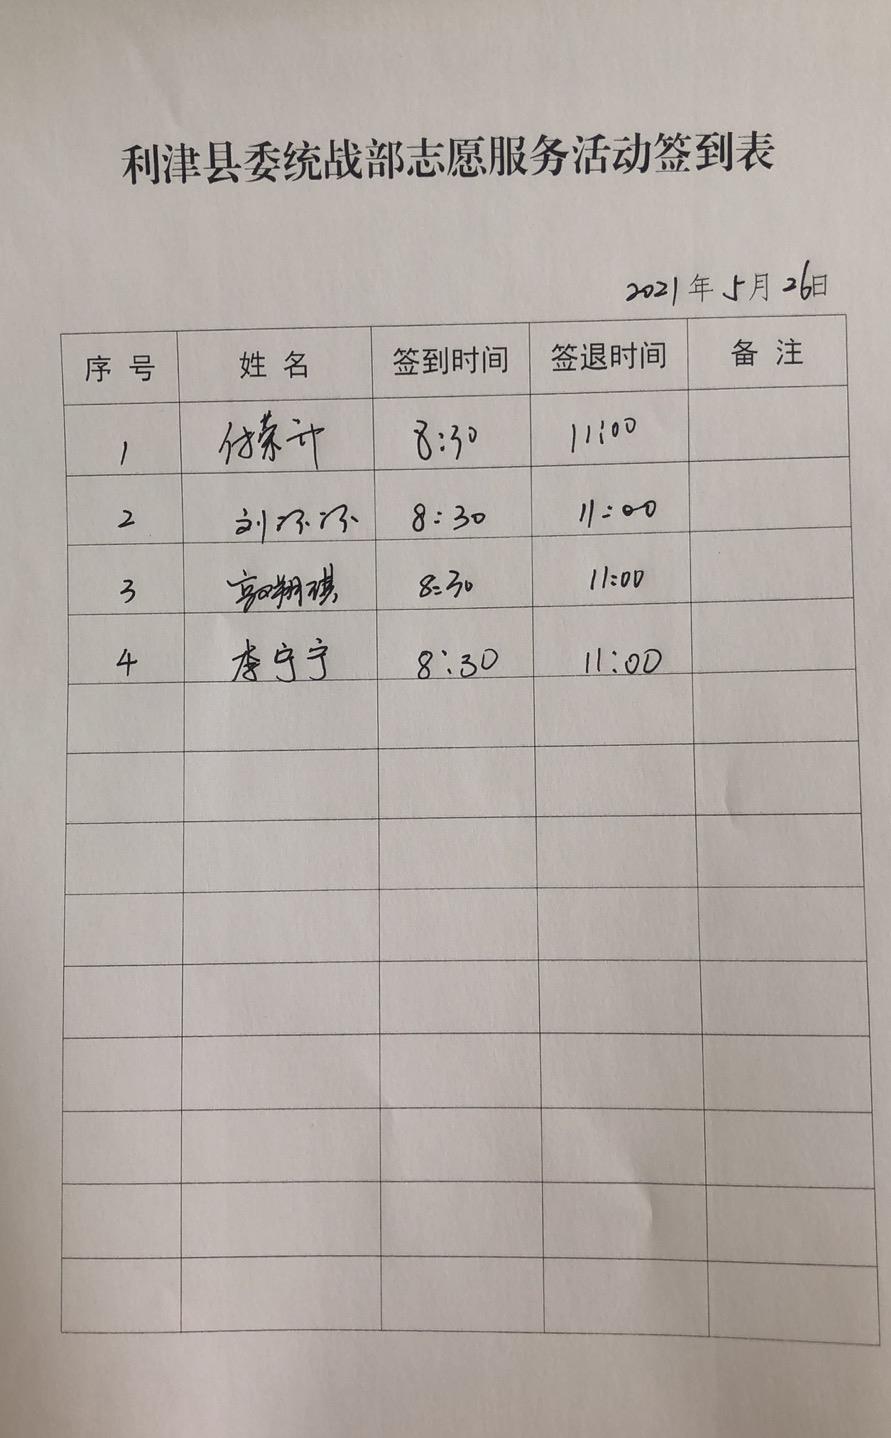 利津县委统战部志愿服务活动签到表
2021年5月26日
序号 姓名 签到时间 签退时间 备注
1 付荣计 8:30 11:00
2 刘环环 8:30 11:00
3 翔琪 8:30 11:00
4 李宁宁 8:30 11:00